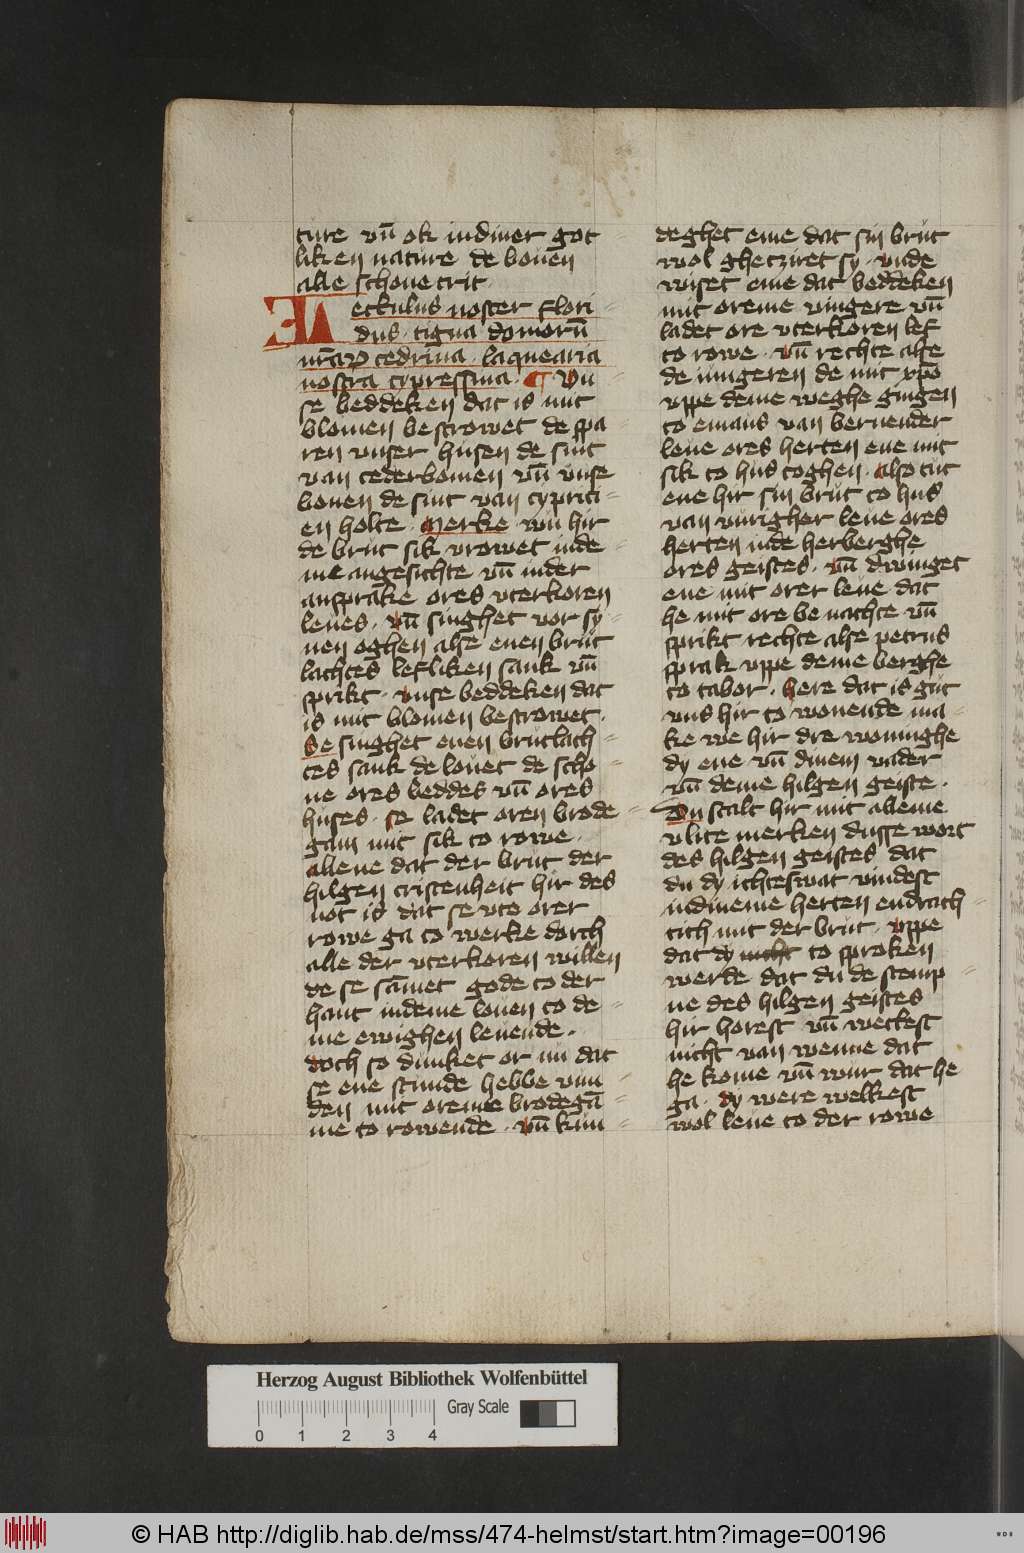 ture vn̄ ok in diner got
liken nature de bouen
alle schone trit
Lectulus noster flori
dus · tigna domorū
nr̄aꝝ cedrina · laquearia
nostra cypressina · ¶ Vn
se beddeken dat is mit
blomen bestrowet de spa
ren vnser husen de sint
van cederbomen vn̄ vnse
bonen de sint van cyprici-
en holte · Merke · wu hir
de brut sik vrowet inde
me angesichte vn̄ inder
ansprake ores vterkoren
leues · vn̄ singhet vor sy-
nen oghen alse enen brut
lachtes lefliken sank vn̄
sprikt · vnse beddeken dat
is mit blomen bestrowet ·
Se singhet enen brutlach-
tes sank de louet de scho-
ne ores beddes vn̄ ores
huses · se ladet oren brode
gam mit sik to rowe ·
allene dat der brut der
hilgen cristenheit hir des
not is dat se vto orer
rowe ga to werke dorch
alle der vterkoren willen
de se sāmet gode to der
hant indeme louen to de
me ewighen leuende ·
doch so dunket or nu dat
se ene stunde hebbe vun
den mit oreme brodegā
me to rowende · vn̄ kun
deghet eme dat sin brut
wol gheciret sy · vnde
wiset eme dat beddeken
mit oreme vingere vn̄
ladet ore vterkoren lef
to rowe · vn̄ rechte alse
de iungeren de mit xp̄o
vppe deme weghe gingen
to emaus van bernender
leue ores herten ene mit
sik to hus toghen · also tut
ene hir sin brut to hus
van vurigher leue ores
herten inde herberghe
ores geistes · vn̄ dwinget
ene mit orer leue dat
he mit ore benachte vn̄
sprikt rechte alse petrus
sprak vppe deme berghe
to tabor · here dat is gut
vns hir to wonende ma-
ke we hir dre woninghe
dy ene vn̄ dinem vader
vn̄ deme hilgen geiste ·
Du scalt hir mit alleme
vlite merken dusse wort
des hilgen geistes dat
du dy ichteswat vindest
indineme herten endrach-
tich mit der brut · vppe
dat dy nicht to sproken
werde dat du de stemp-
ne des hilgen geistes
hir horest vn̄ weckest
nicht van wenne dat
he kome vn̄ wur dat he
ga · dy were welkest
wol leue to der rowe
Herzog August Bibliothek Wolfenbüttel
Gray Scale
0 1 2 3 4
© HAB http://diglib.hab.de/mss/474-helmst/start.htm?image=00196
WDB